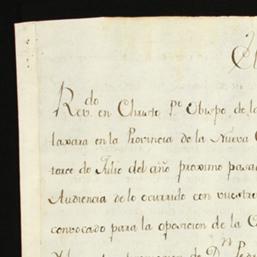 El
Rev.do en Christo P.e Obispo de la
laxara en la Provincia de la Nueva
torce de Julio del año proximo pasad
Audiencia de lo ocurrido con vuestr
convocado para la oposicion de la C
de D.n